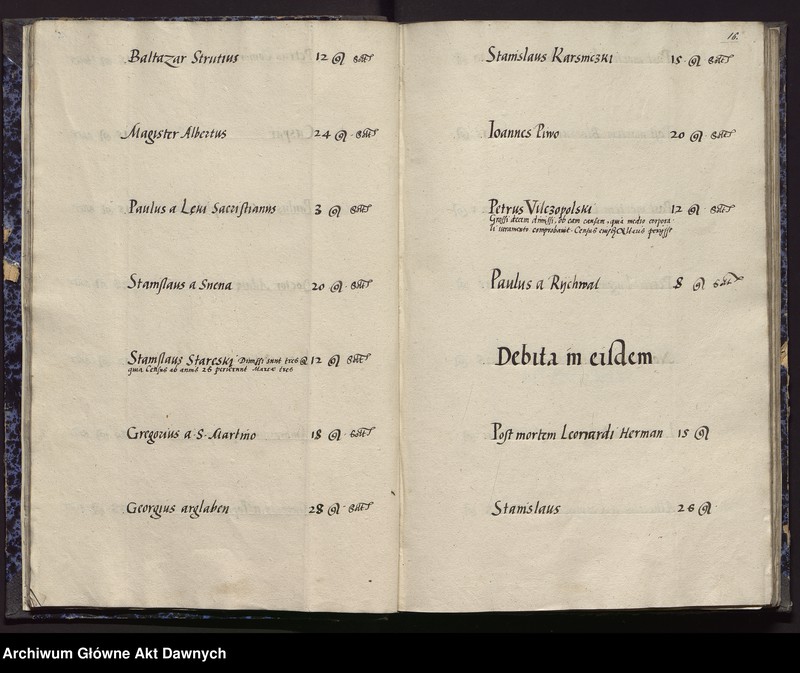 Baltazar Strutius 12 @ Satt
Magister Albertus 24 @ Satt
Paulus a Leni Sacristianus 3 @ Satt
Stanislaus a Snena 20 @ Satt
Stanislaus Stareski Dimissi sunt tres @ 12 @ Satt
quia Census ab annis 26 perierunt Marcæ tres
Gregorius a S. Martino 18 @ Satt
Georgius arglaben 28 @ Satt
16.
Stanislaus Karsinczki 15 @ Satt
Ioannes Piwo 20 @ Satt
Petrus Vilczopolski 12 @ Satt
Grossi decem dimissi, ob eam causam, quia medio corpora
li iuramento comprobauit Census
Paulus a Rychwal 8 @ Satt
Debita in eisdem
Post mortem Leonardi Herman 15 @
Stanislaus 26 @
Archiwum Główne Akt Dawnych